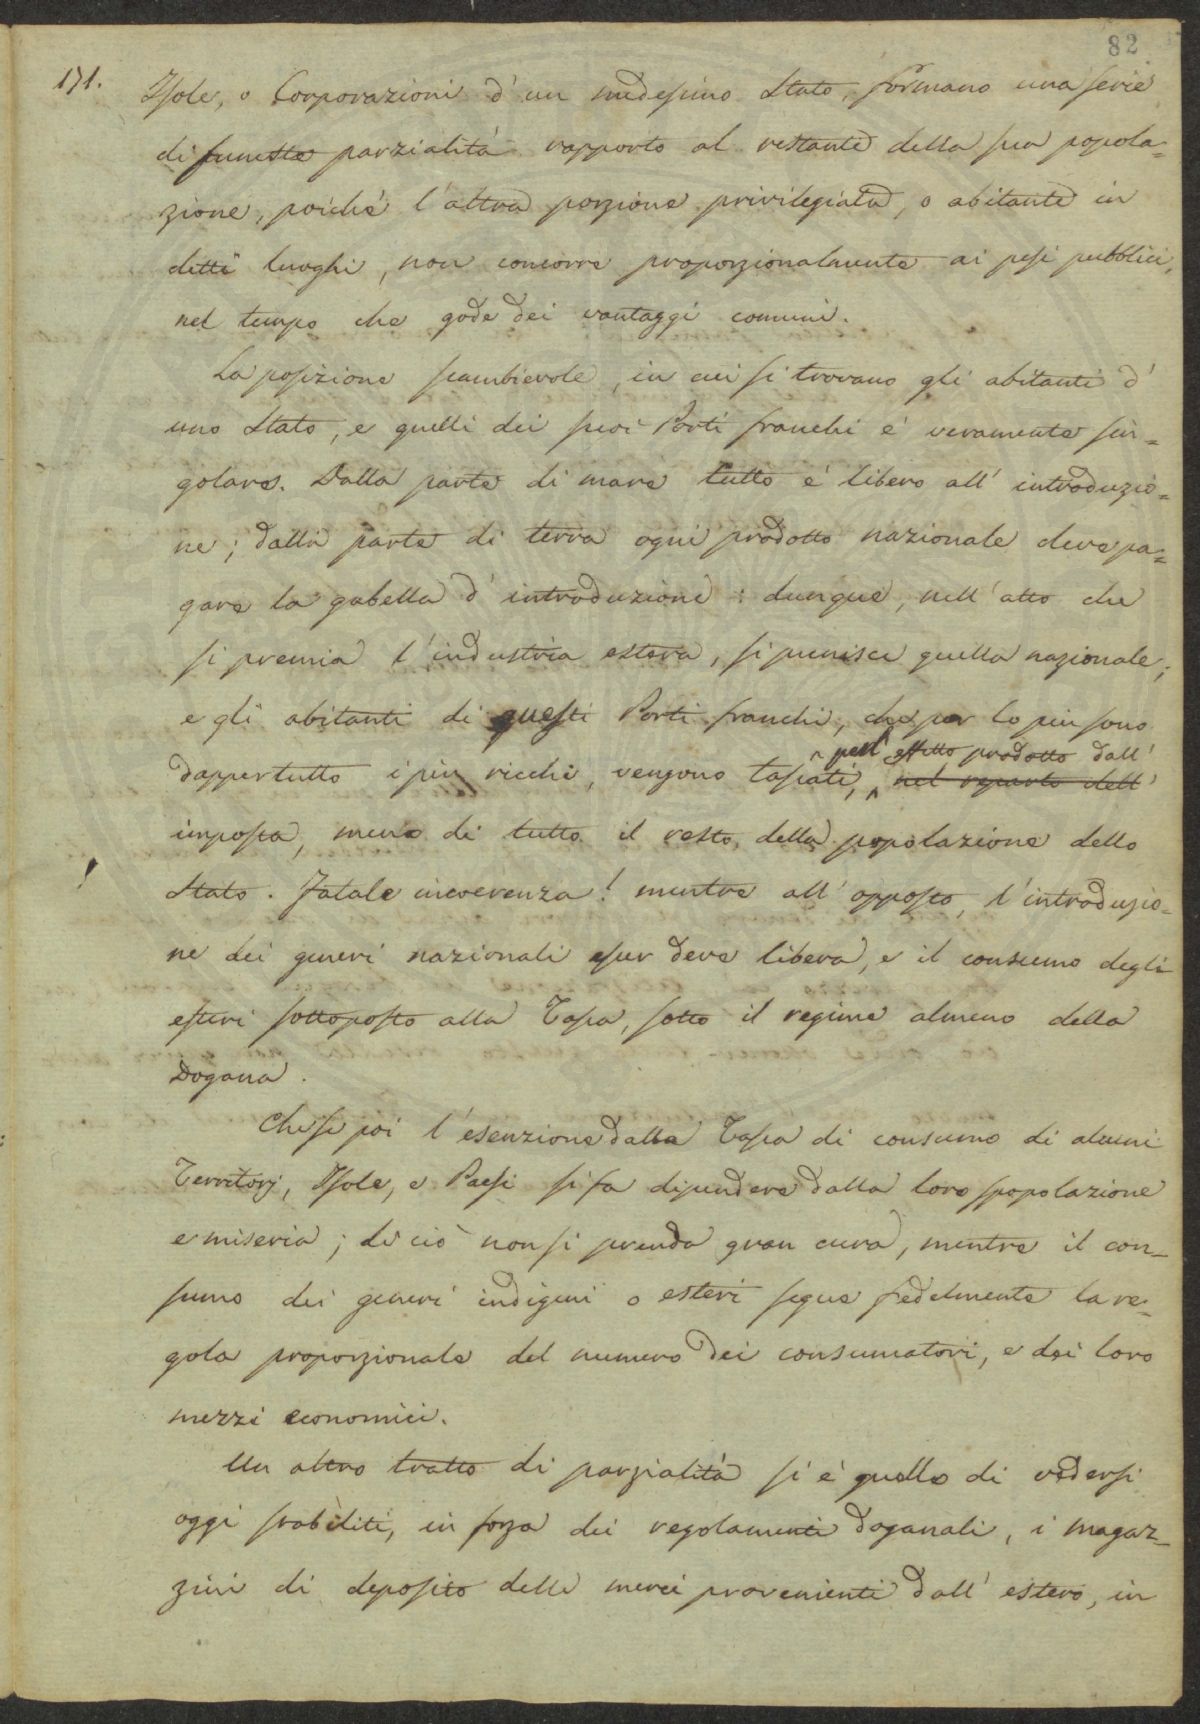 82
171.
Isole, o Corporazioni d'un medesimo Stato, formano una serie
di funeste parzialità rapporto al restante della sua popola=
zione, poichè l'altra porzione privilegiata, o abitante in
detti luoghi, non concorre proporzionalmente ai pesi pubblici,
nel tempo che gode dei vantaggi comuni.
La posizione scambievole, in cui si trovano gli abitanti d'
uno Stato, e quelli dei suoi Porti franchi è veramente sin=
golare. Dalla parte di mare tutto è libero all'introduzio=
ne; dalla parte di terra ogni prodotto nazionale deve pa=
gare la gabella d'introduzione: dunque, nell'atto che
si premia l'industria estera, si punisce quella nazionale;
e gli abitanti di questi Porti franchi, che per lo più sono
pell'effetto prodotto dall'
dappertutto i più ricchi, vengono tassati, nel reparto dell'
imposta, meno di tutto il resto della popolazione dello
Stato. Fatale incoerenza! mentre all'opposto, l'introduzio=
ne dei generi nazionali esser deve libera, e il consumo degli
esteri sottoposto alla Tassa, sotto il regime almeno della
Dogana.
Che se poi l'esenzione dalla Tassa di consumo di alcuni
Territorj, Isole, e Paesi si fa dipendere dalla loro spopolazione
e miseria; di ciò non si prenda gran cura, mentre il con=
sumo dei generi indigeni o esteri segue fedelmente la re=
gola proporzionale del numero dei consumatori, e dei loro
mezzi economici.
Un altro tratto di parzialità si è quello di vedersi
oggi stabiliti, in forza dei regolamenti doganali, i magaz=
zini di deposito delle merci provenienti dall'estero, in